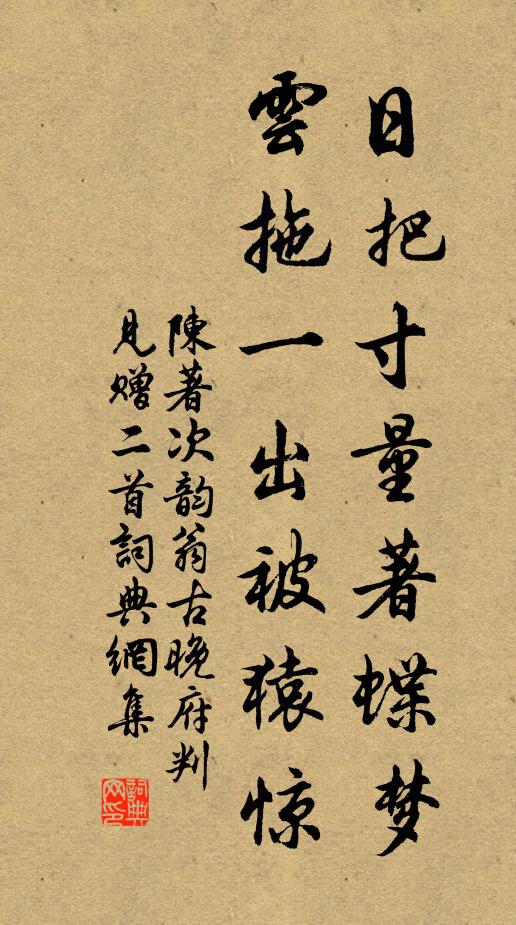 日把寸量著蝶梦
雲拖一出被猿惊
陳著次韵翁古晚府判
見贈二首詞典網集
詞典
网印